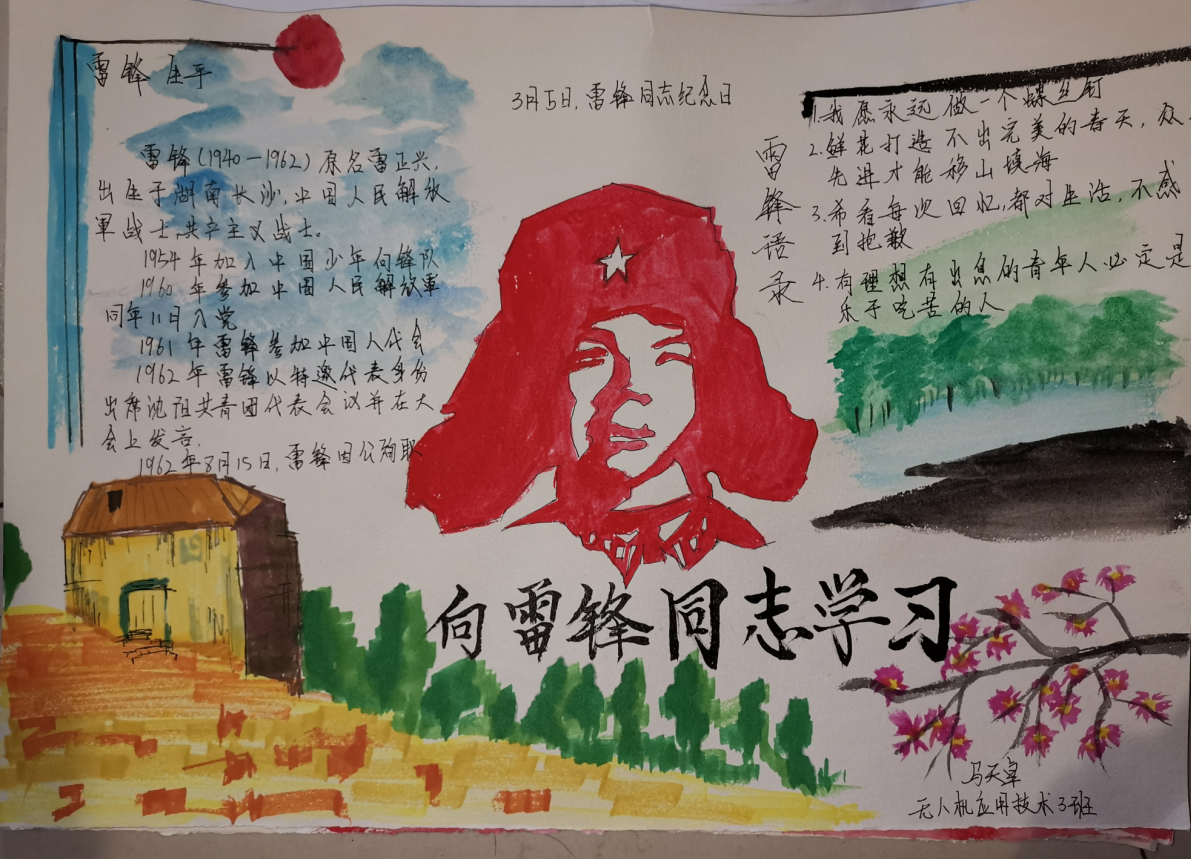 雷锋生平
雷锋(1940—1962)原名雷正兴,
出生于湖南长沙,中国人民解放
軍战士,共产主义战士。
1954年加入中国少年先锋队
1960年参加中国人民解放軍
同年11月入党
1961年雷锋参加中国人代会
1962年雷锋以特邀代表身份
出席沈阳共青团代表会议并在大
会上发言.
1962年8月15日,雷锋因公殉职
3月5日,雷锋同志纪念日
雷锋语录
1.我愿永远做一个螺丝钉
2.鲜花打造不出完美的春天,众
先进才能移山填海
3.希看每次回忆,都对生活,不感
到抱歉
4.有理想有出息的青年人必定是
乐于吃苦的人
向雷锋同志学习
马天卓
无人机应用技术3班